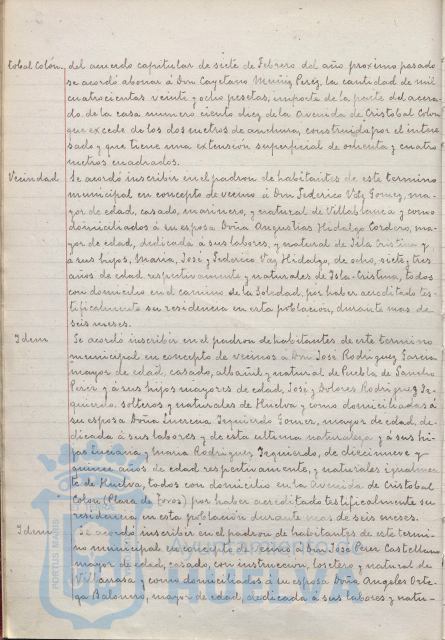 tobal Colón. del acuerdo capitular de siete de Febrero del año proximo pasado
se acordó abonar á Don Cayetano Muñiz Perez, la cantidad de mil
cuatrocientas veinte y ocho pesetas, importe de la parte del acera-
do, de la casa numero ciento diez de la Avenida de Cristobal Colon
que excede de los dos metros de anchura, construida por el intere-
sado y que tiene una extensión superficial de ochenta y cuatro
metros cuadrados.
Vecindad Se acordó inscribir en el padron de habitantes de este termino
municipal en concepto de vecino á Don Federico Vaz Gomez, ma-
yor de edad, casado, marinero, y natural de Villablanca y como
domiciliados á su esposa Doña Angustias Hidalgo Cordero, ma-
yor de edad, dedicada á sus labores, y natural de Isla Cristina y
á sus hijos, Maria, José y Federico Vaz Hidalgo, de ocho, siete y tres
años de edad respectivamente y naturales de Isla-Cristina, todos
con domicilio en el camino de la Soledad, por haber acreditado tes-
tificalmente su residencia en esta población, durante mas de
seis meses.
Idem Se acordó inscribir en el padron de habitantes de este termino
municipal en concepto de vecinos á Don José Rodriguez Garcia
mayor de edad, casado, albañil y natural de Puebla de Sancho
Perez y á sus hijos mayores de edad, José y Dolores Rodriguez Iz-
quierdo, solteros y naturales de Huelva y como domiciliadas á
su esposa Doña Gomez, mayor de edad, de-
dicada á sus labores y de esta ultima naturaleza y á sus hi-
jas Luciana y Maria Rodriguez Izquierdo, de diecinueve y
quince años de edad respectivamente, y naturales igualmen-
te de Huelva, todos con domicilio en la Avenida de Cristobal
Colon (Plaza de Toros) por haber acreditado testificalmente su
residencia en esta población durante mas de seis meses.
Idem Se acordó inscribir en el padron de habitantes de este termi-
no municipal en concepto de vecino á Don José Perez Castellano
mayor de edad, casado, con instruccion, losetero y natural de
Villarrasa y como domiciliados á su esposa Doña Angeles Orte-
ga Balonero, mayor de edad, dedicada á sus labores y natu-
PORTUS MARIS